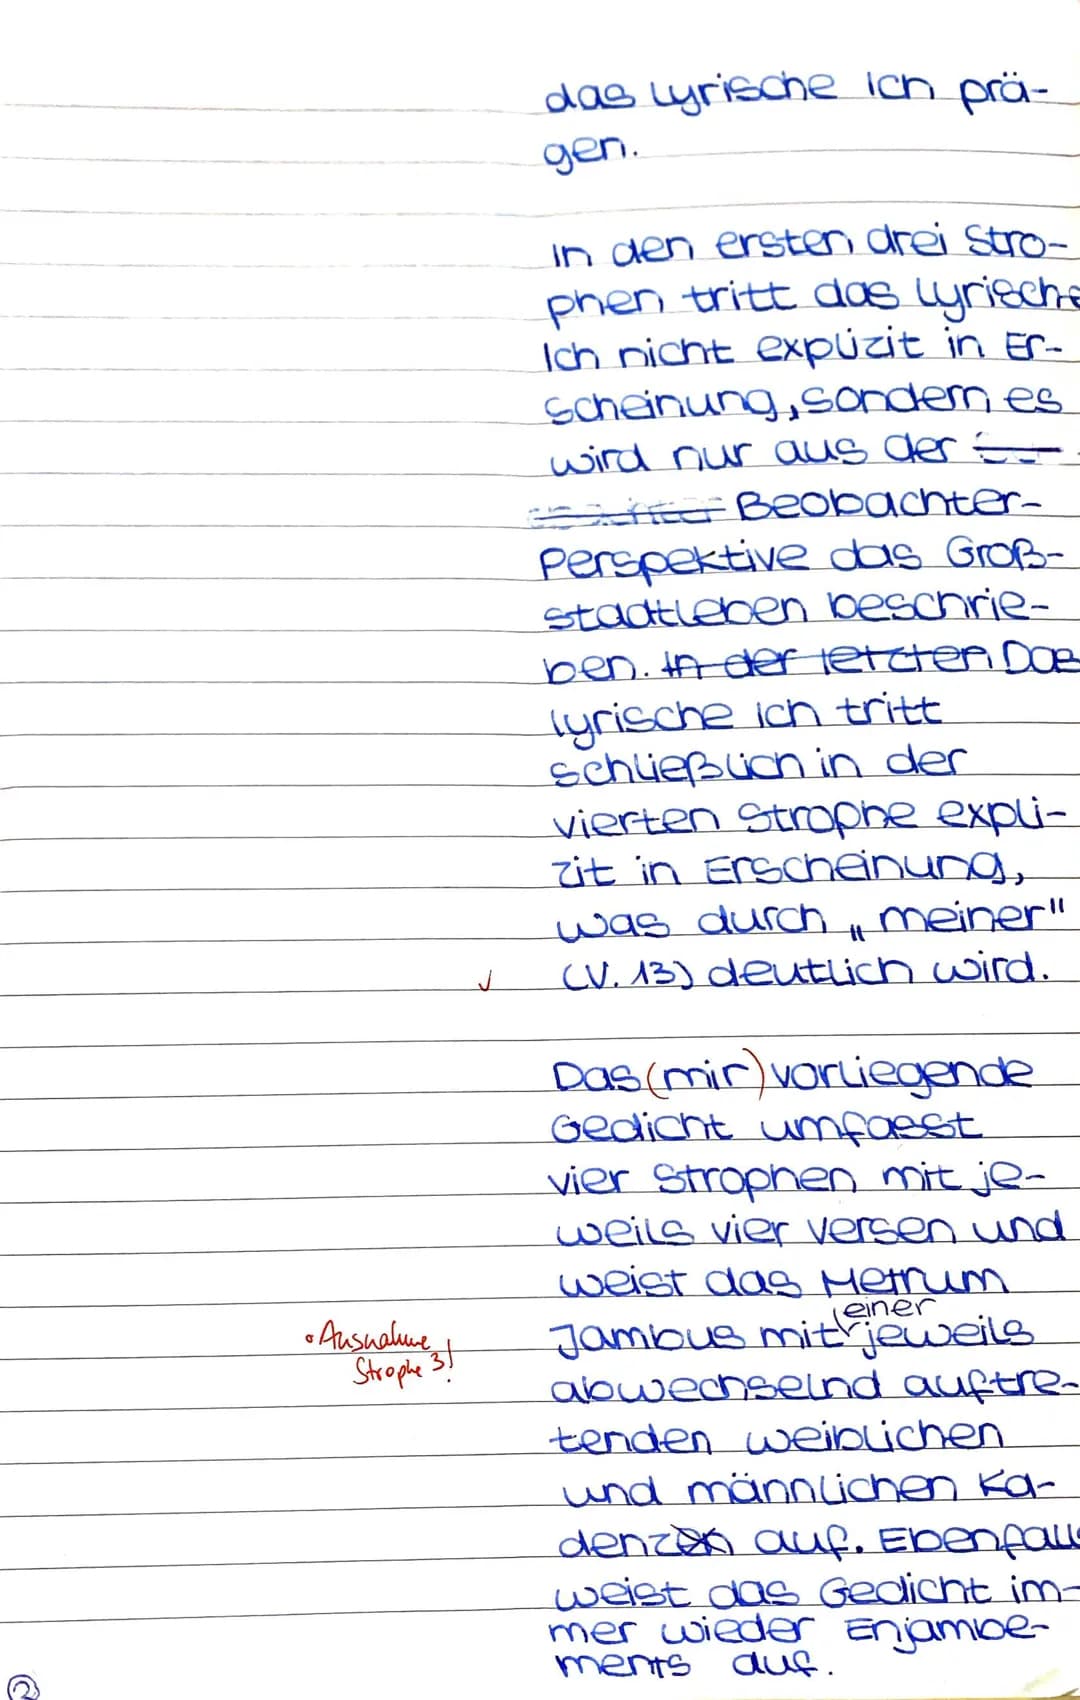 das lyrische Ich prä-
gen.
In den ersten drei Stro-
phen tritt das lyrische
Ich nicht explizit in Er-
scheinung, sondern es
wird nur aus der
Beobachter-
Perspektive das Groß-
stadtleben beschrie-
ben. In der letzten Das
lyrische Ich tritt
schließlich in der
vierten Strophe expli-
zit in Erscheinung,
was durch „meiner"
✓ (V. 13) deutlich wird.
Das (mir) vorliegende
Gedicht umfasst
vier Strophen mit je-
weils vier Versen und
weist das Metrum
einer
Jambus mit jeweils
• Ausnahme
Strophe 3!
abwechselnd auftre-
tenden weiblichen
und männlichen Ka-
denzen auf. Ebenfalls
weist das Gedicht im-
mer wieder Enjambe-
ments auf.
②